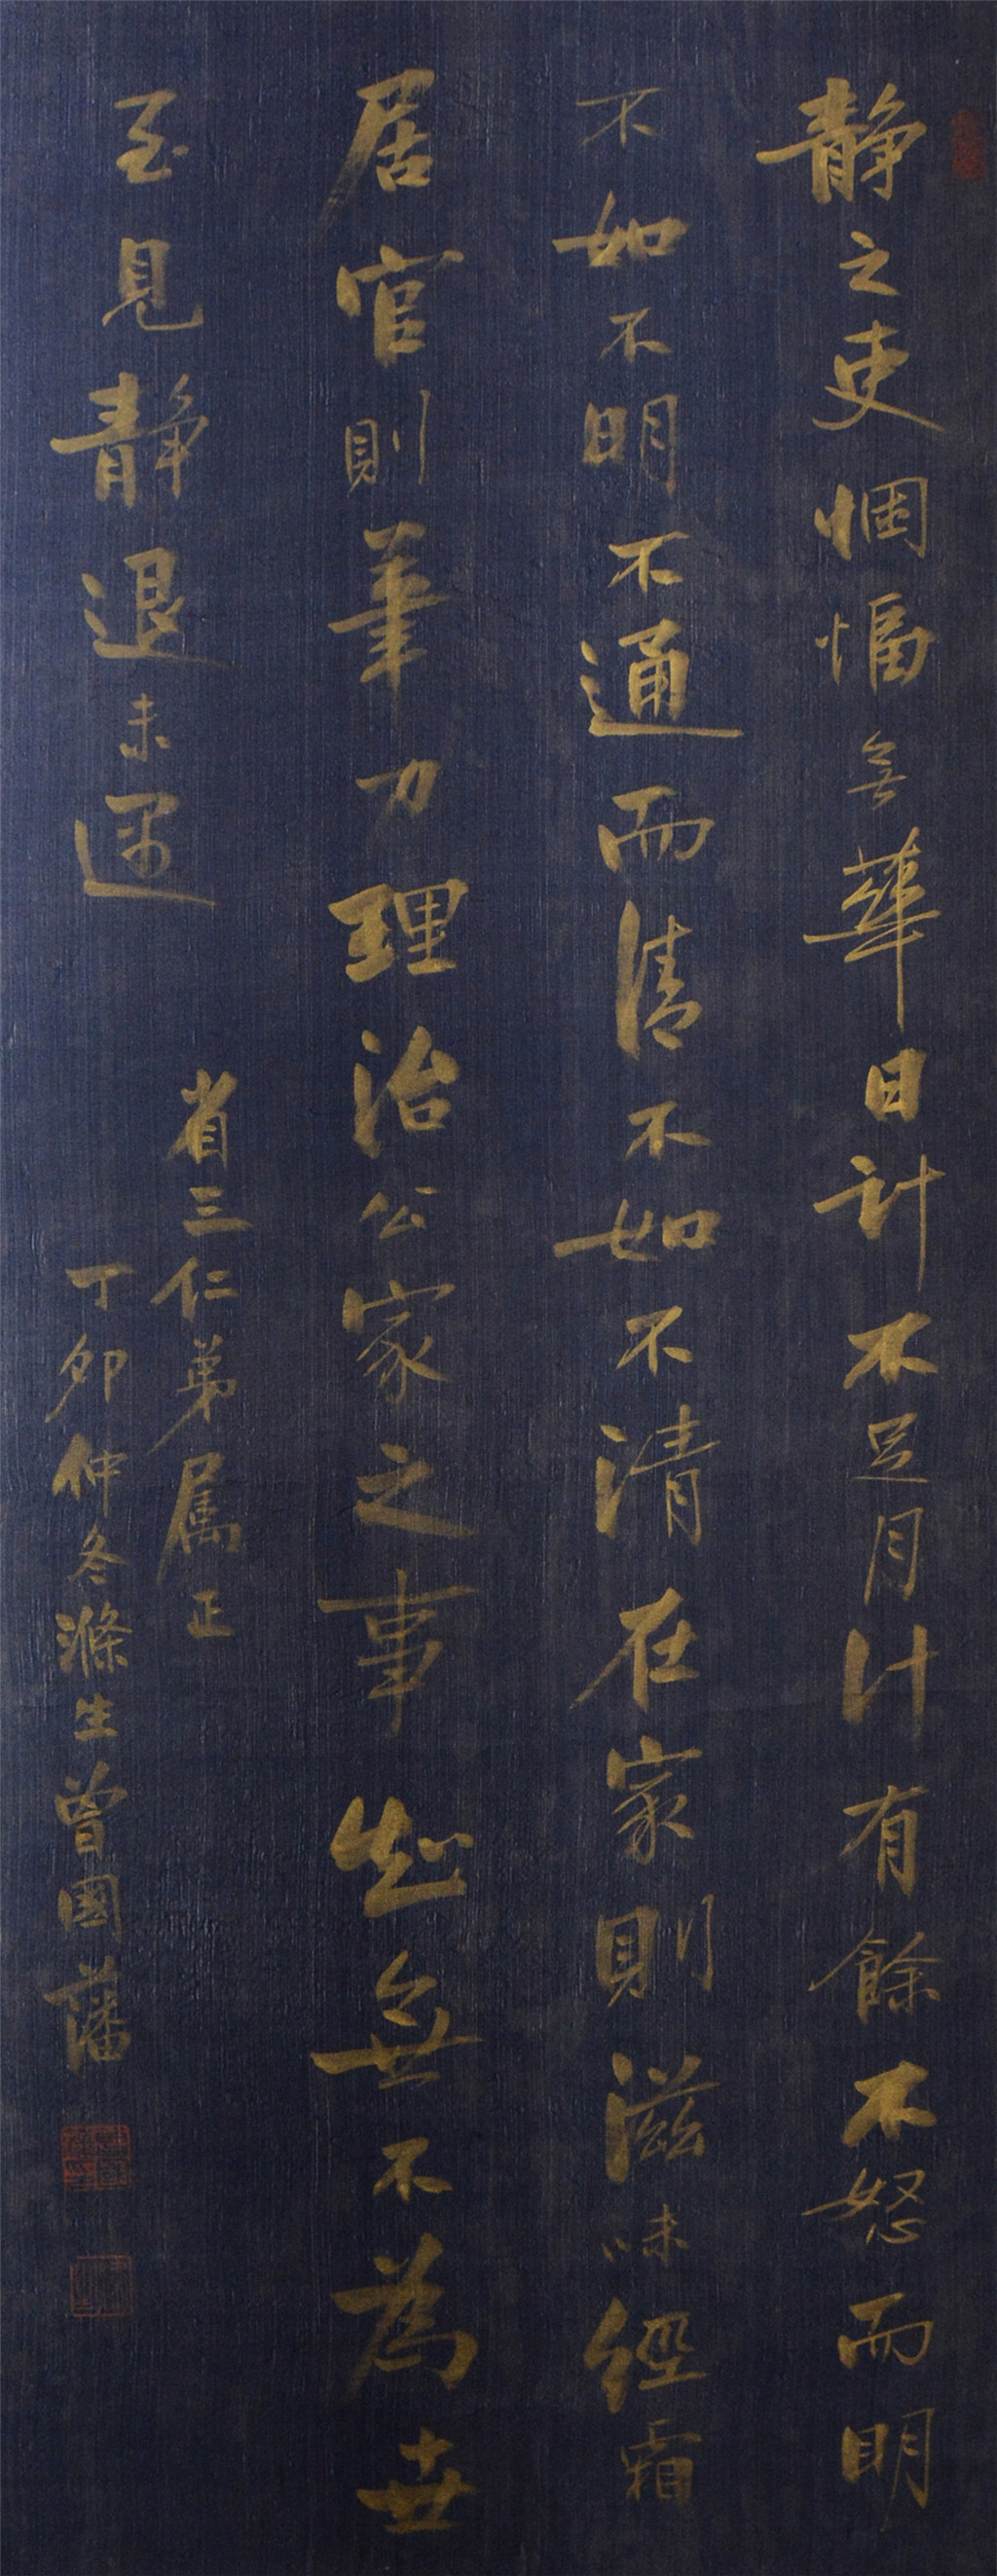 静之吏悃愊無華日計不足月計有餘不怒而明
不如不明不通而清不如不清在家則滋味經霜
居官則筆力理治公家之事知無不為世
至見静退未
省三仁弟属正
丁卯仲冬滌生曾國藩